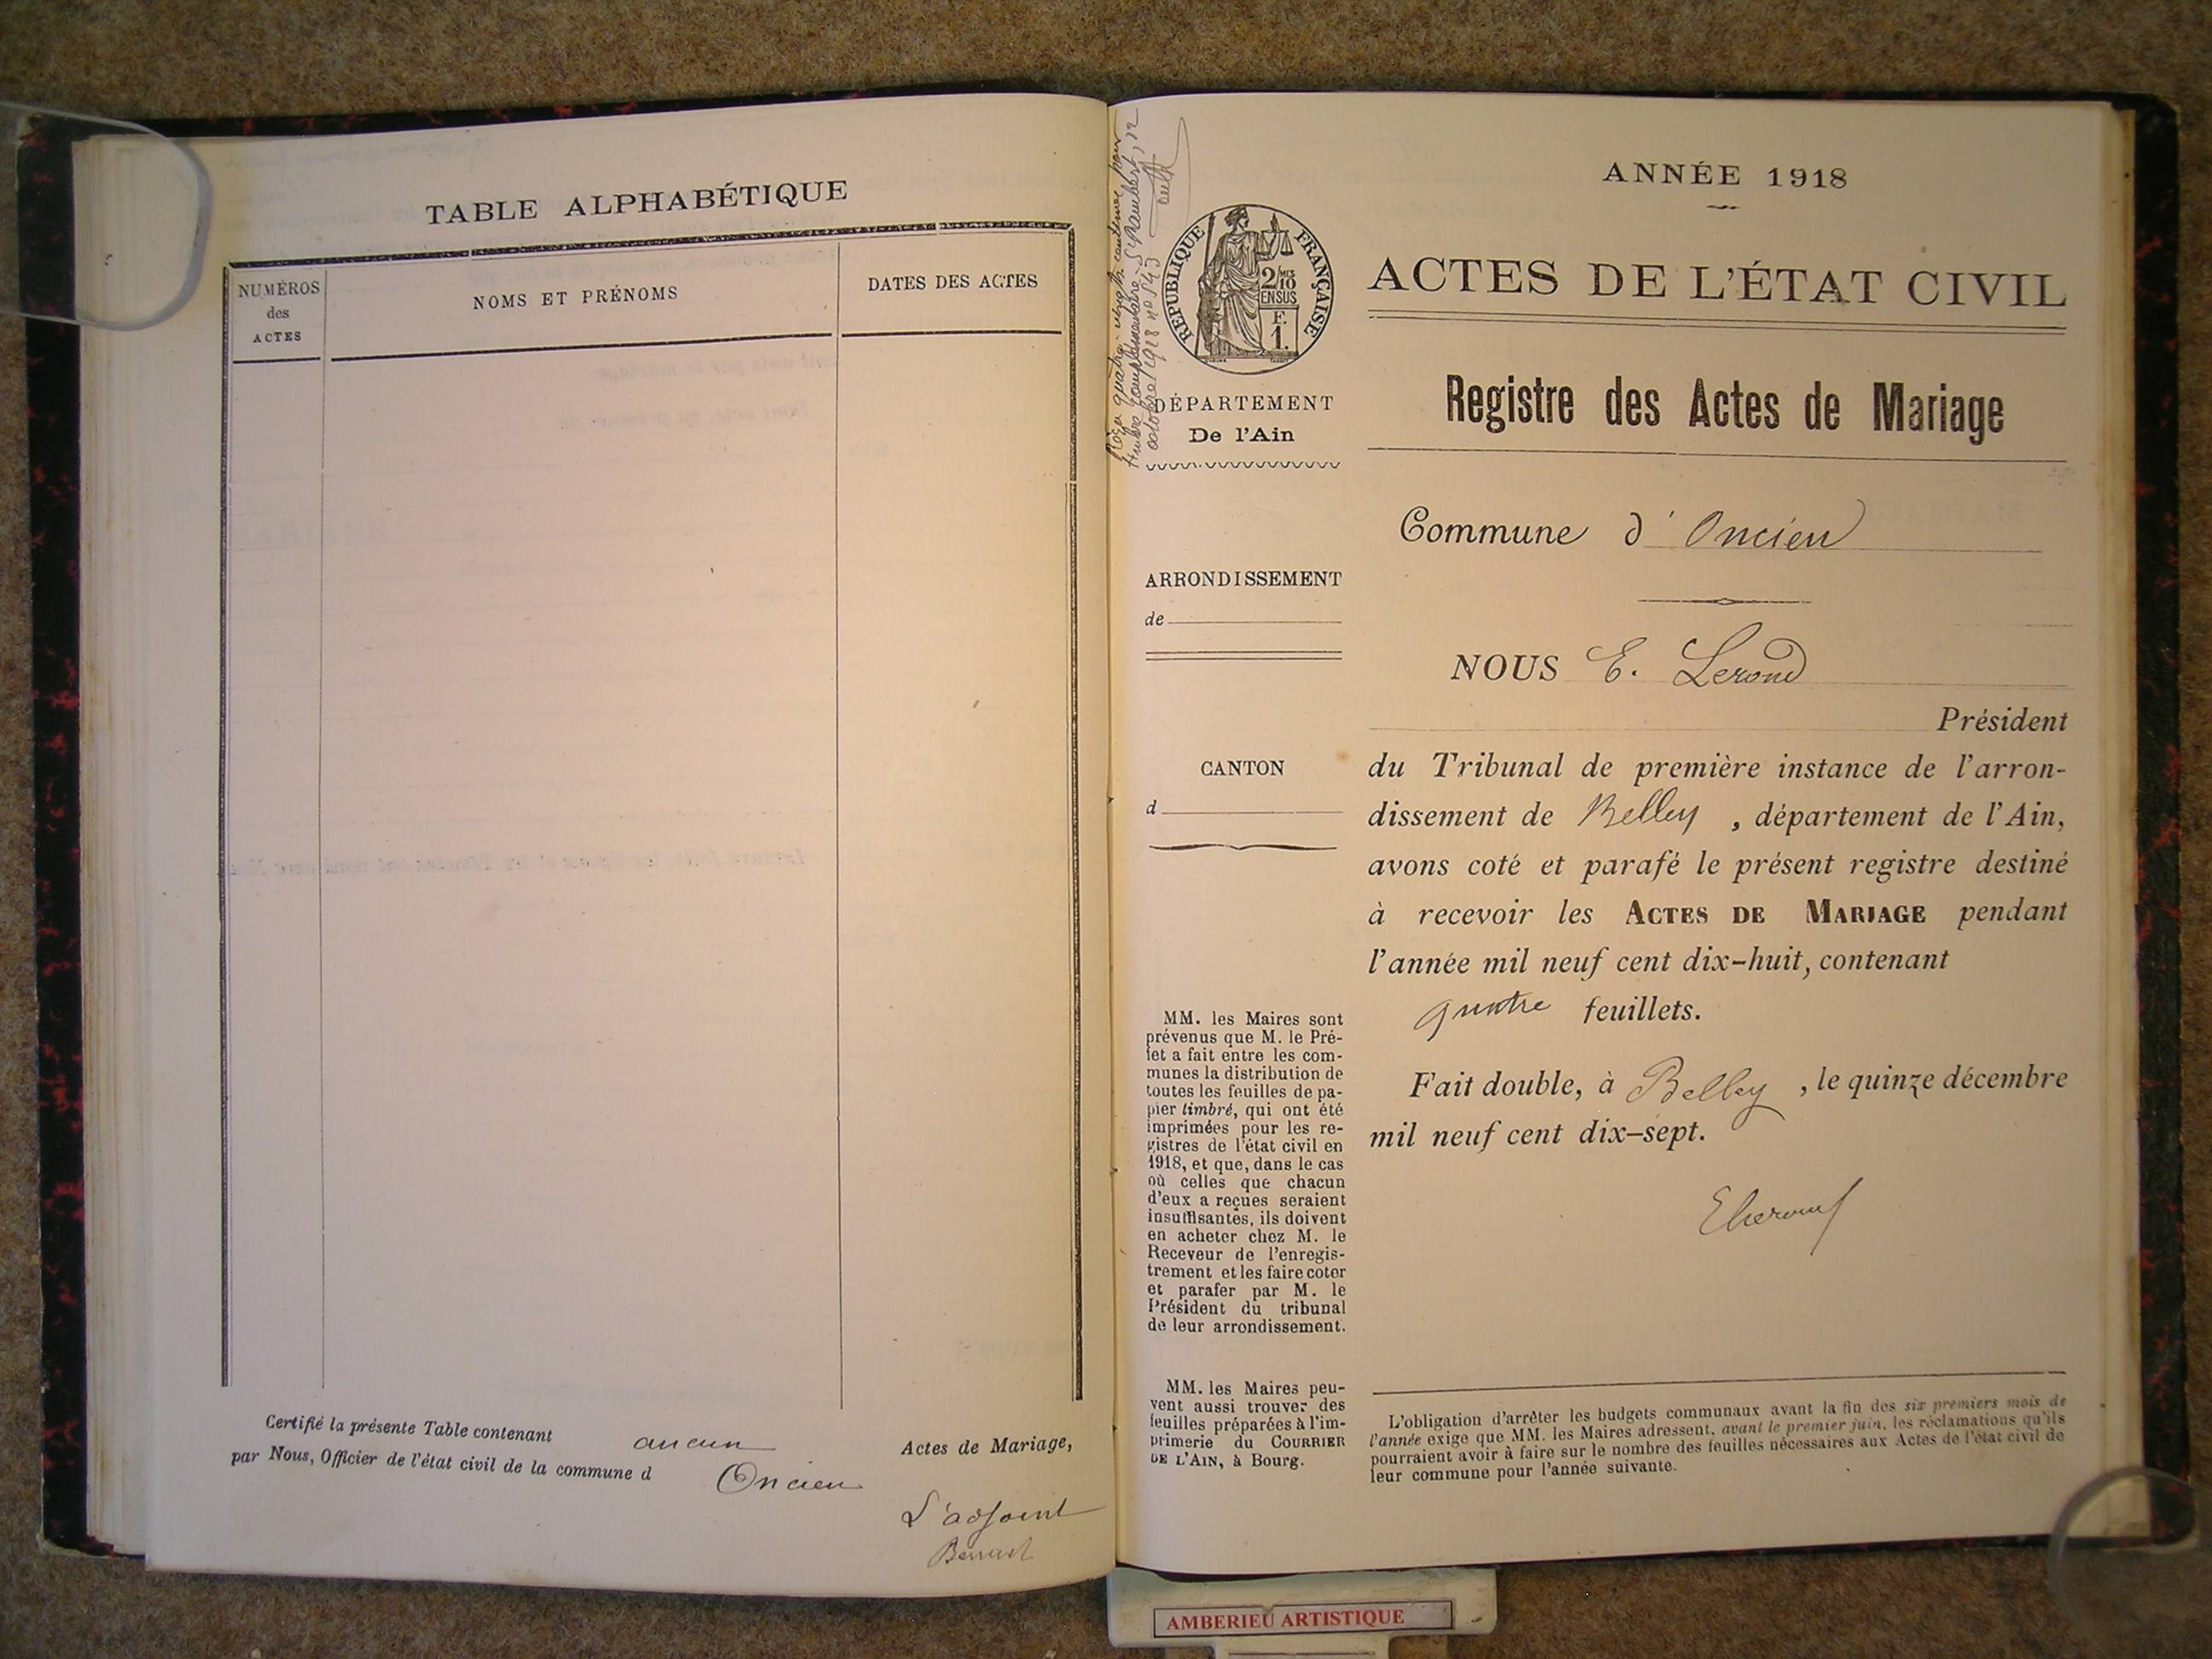 TABLE ALPHABÉTIQUE
NUMÉROS
des
ACTES
NOMS ET PRÉNOMS
DATES DES ACTES
Certifié la présente Table contenant aucun Actes de Mariage,
par Nous, Officier de l'état civil de la commune d Oncieu
L'adjoint
ANNÉE 1918
ACTES DE L'ÉTAT CIVIL
Registre des Actes de Mariage
RÉPUBLIQUE FRANÇAISE
2/10
MES
EN SUS
F.
1.
DÉPARTEMENT
De l'Ain
ARRONDISSEMENT
de
CANTON
d
MM. les Maires sont
prévenus que M. le Pré-
fet a fait entre les com-
munes la distribution de
toutes les feuilles de pa-
pier timbré, qui ont été
imprimées pour les re-
gistres de l'état civil en
1918, et que, dans le cas
où celles que chacun
d'eux a reçues seraient
insuffisantes, ils doivent
en acheter chez M. le
Receveur de l'enregis-
trement et les faire coter
et parafer par M. le
Président du tribunal
de leur arrondissement.
MM. les Maires peu-
vent aussi trouver des
feuilles préparées à l'im-
primerie du COURRIER
DE L'AIN, à Bourg.
Commune d'Oncieu
NOUS E. Lerond
Président
du Tribunal de première instance de l'arron-
dissement de Belley, département de l'Ain,
avons coté et parafé le présent registre destiné
à recevoir les ACTES DE MARIAGE pendant
l'année mil neuf cent dix-huit, contenant
quatre feuillets.
Fait double, à Belley, le quinze décembre
mil neuf cent dix-sept.
L'obligation d'arrêter les budgets communaux avant la fin des six premiers mois de
l'année exige que MM. les Maires adressent, avant le premier juin, les réclamations qu'ils
pourraient avoir à faire sur le nombre des feuilles nécessaires aux Actes de l'état civil de
leur commune pour l'année suivante.
AMBERIEU ARTISTIQUE